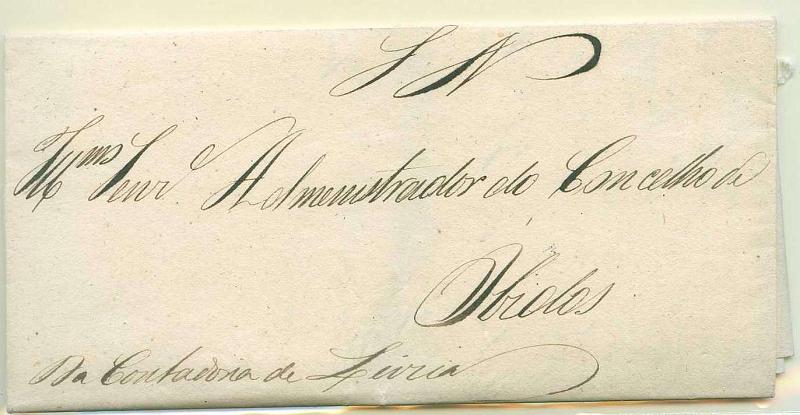 S N
Ill.mo Senr. Administrador do Concelho de
Obidos
Da Contadoria de Leiria